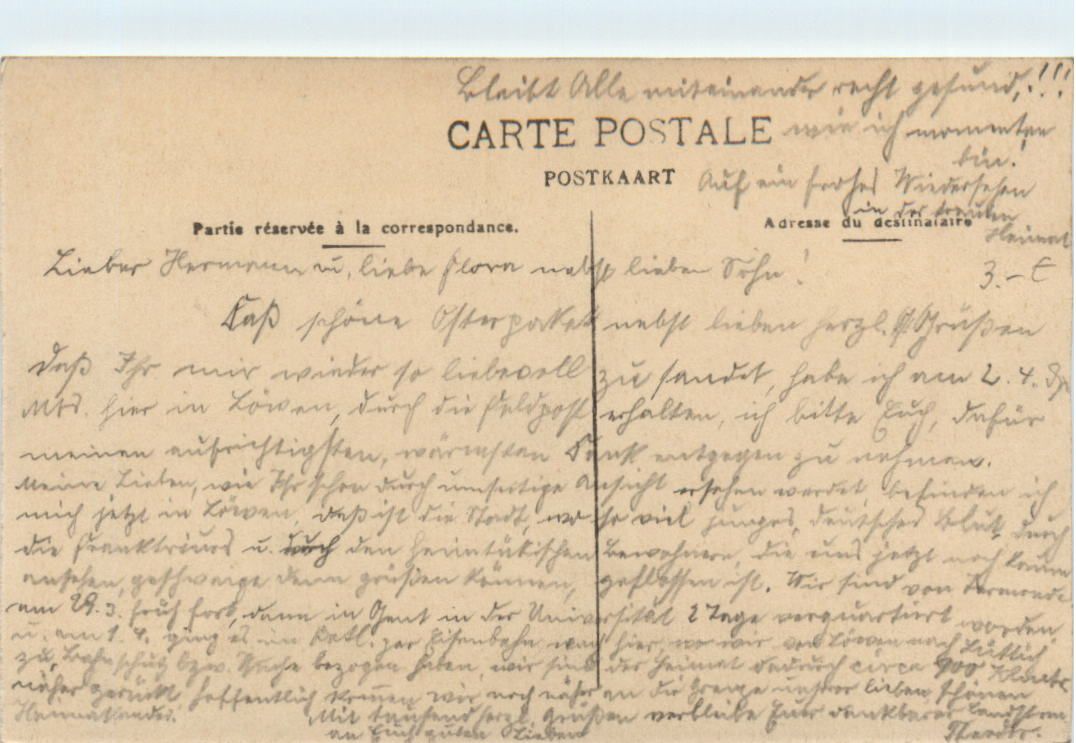 Bleibt Alle miteinander recht gesund, !!!
CARTE POSTALE
wie ich momentan
bin!
POSTKAART
Auf ein frohes Wiedersehen
in der trauten
Heimat
Partie réservée à la correspondance.
Adresse du destinataire
3.-
Lieber Hermann u. liebe Flora nebst lieben Sohn!
Daß schöne Osterpaket nebst lieben herzl. Grüßen
daß Ihr mir wieder so liebevoll zu sandet, habe ich am 2. 4.
Mts. hier in Löwen, durch die Feldpost erhalten, ich bitte Euch, dafür
meinen aufrichtigsten, wärmsten Dank entgegen zu nehmen.
Meine Lieben, wie Ihr schon durch umseitige Ansicht ersehen werdet befinden ich
mich jetzt in Löwen, daß ist die Stadt, wo so viel junges, deutsches Blut, durch
die Franktireurs u. durch den heimtükischen Bewohnern, die uns jetzt noch kaum
ansehen, geschweige denn grüßen können, geflossen ist. Wir sind von Termonde
am 29. 3. früh fort, dann in Gent in der Universität 2 Tage verquartiert worden
u. am 1. 4. ging es im Batl. per Eisenbahn nach hier, wo wir von Löwen nach Lüttich
zu, Bahnschutz bzw. Wache bezogen haben, wir sind der Heimat dadurch circa 900
näher gerückt, hoffentlich kommen wir noch näher an die Grenze unseres lieben, schönen
Heimatlandes.
Mit tausend herzl. Grüßen verbleibe Euer dankbarer Landsturm
an Euch guten Lieben
Theodor.